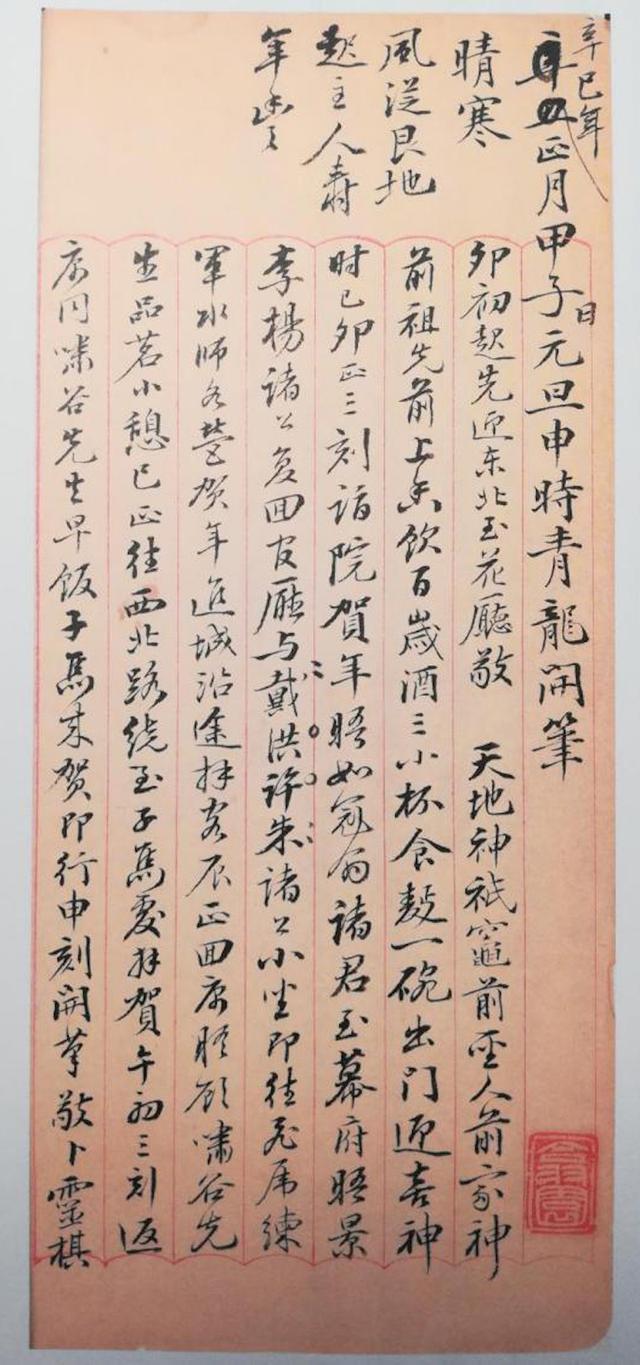 辛巳年
正月甲子日元旦申時青龍開筆
晴寒
風從艮地
起主人壽
年豐
卯初起先迎东北至花廳敬 天地神祇竈前聖人前家神
前祖先前上香飲百歲酒三小杯食麪一碗出門迎喜神
时已卯正三刻詣院賀年晤如冠翁諸君至幕府晤景
李楊諸公复回官廳与戴洪許朱諸公小坐即往飛虎練
軍水師各營贺年進城沿途拜客辰正回寓眂顧嘯谷先
生品茗小憩巳正往西北路绕至子馬處拜賀午初三刻返
寓同嘯谷先生早饭子馬来贺即行申刻開筆敬卜靈棋